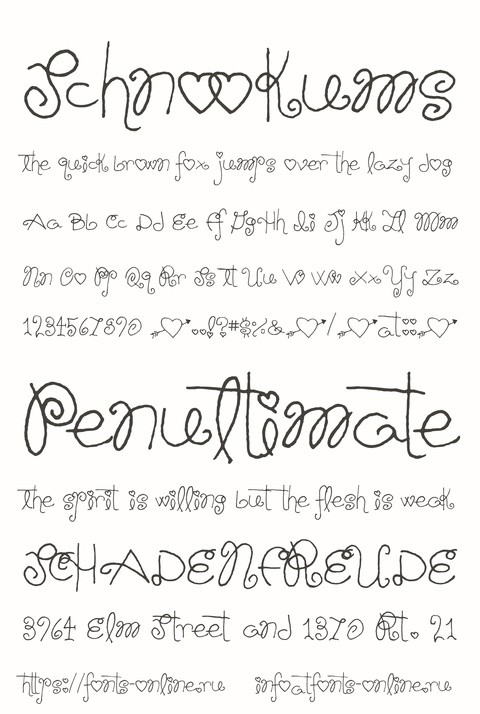 Schnookums
the quick brown fox jumps over the lazy dog
Aa Bb Cc Dd Ee Ff Gg Hh Ii Jj Kk Ll Mm
Nn Oo Pp Qq Rr Ss Tt Uu Vv Ww Xx Yy Zz
1234567890 .,!?#$%&/at:;
Penultimate
the spirit is willing but the flesh is weak
SCHADENFREUDE
3964 Elm Street and 1370 Rt. 21
https://fonts-online.ru infoatfonts-online.ru